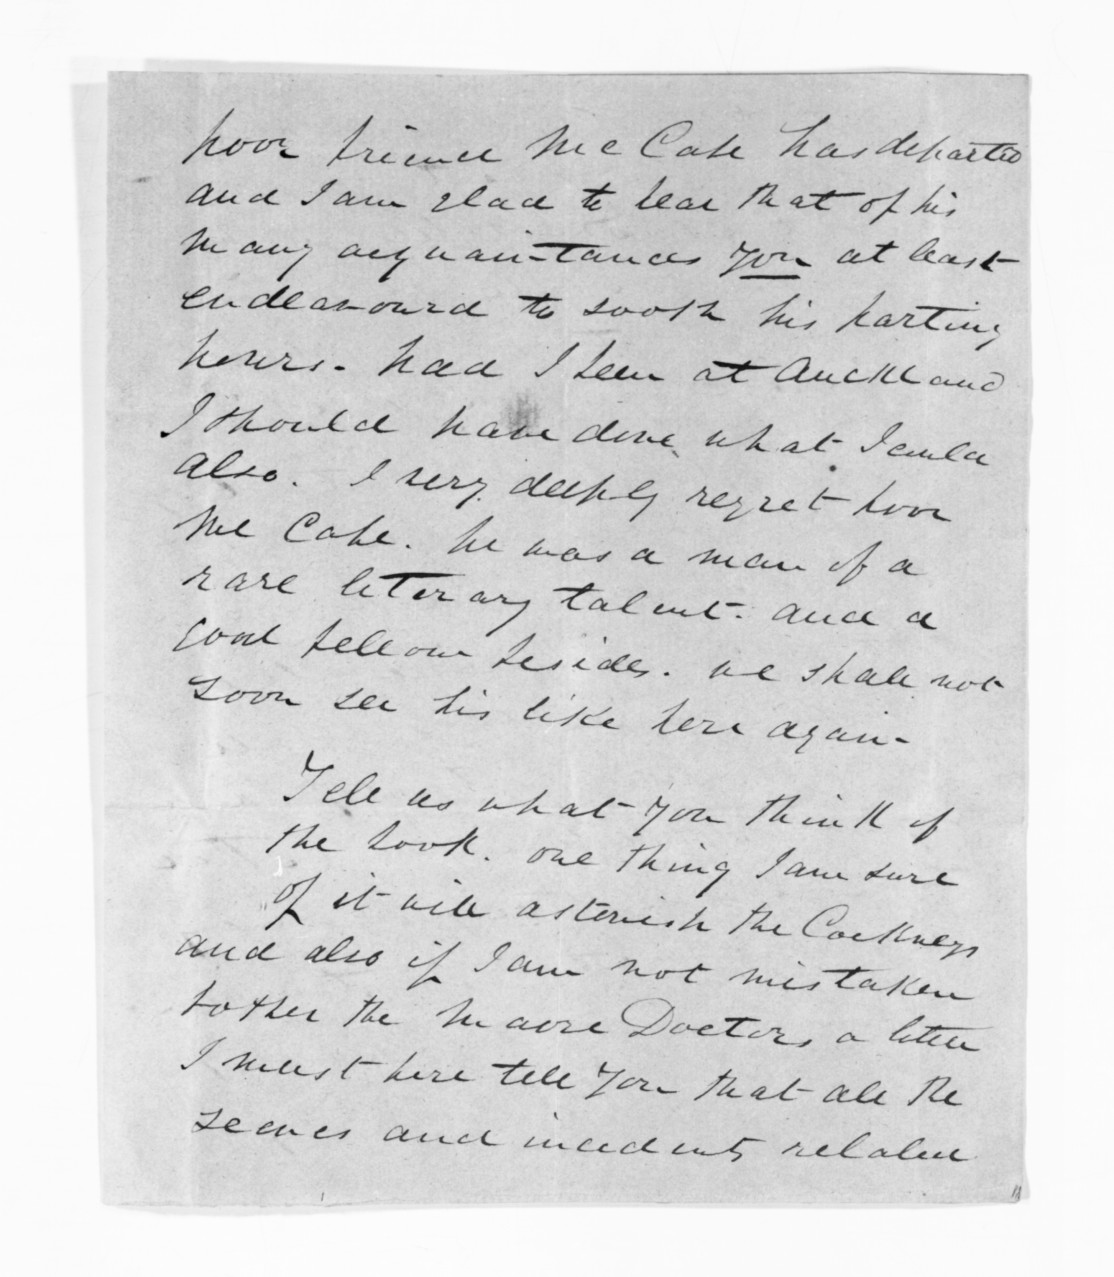 poor friend McCabe has departed
and I am glad to hear that of his
many acquain-tances you at least
endeavourd to sooth his parting
hours. had I been at Auckland
I should have done what I could
also. I very deeply regret poor
McCabe. he was a man of a
rare literary talent. and a
good fellow besides. we shall not
soon see his like here again-
Tell us what you think of
the book. one thing I am sure
of it will astonish the Cockneys
and also if I am not mistaken
bother the Maore Doctors a little
I must here tell you that all the
scenes and incidents related